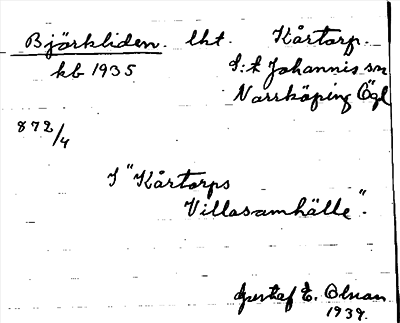 Björkliden. lht. Kårtorp.
kb 1935 S:t Johannis sn
Norrköping Ögl
872/4
I "Kårtorps
Villasamhälle".
Gustaf E. Olsson
1939.